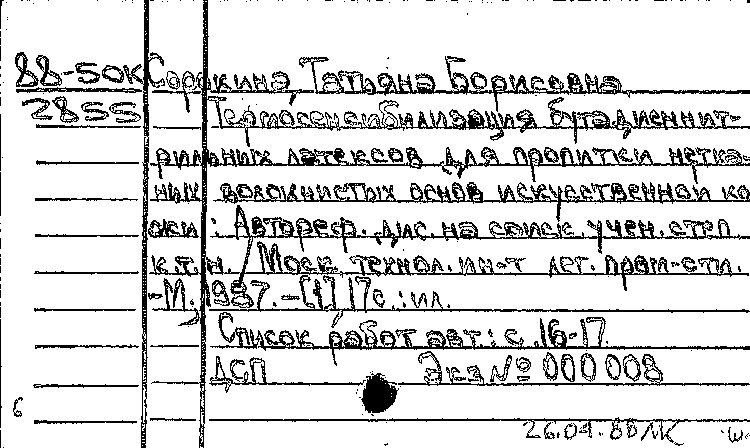 88-50К Сорокина, Татьяна Борисовна
2855 Термосенсибилизация бутадиеннит-
рильных латексов для пропитки нетка-
ных волокнистых основ искусственной ко
жи : Автореф. дис. на соиск. учен. степ
к.т.н. / Моск. технол. ин-т лег. пром-сти.
-М., 1987. -[1] 17 с. : ил.
Список работ авт.: с. 16-17
ДСП Экз № 000 008
6
26.04.88 МК